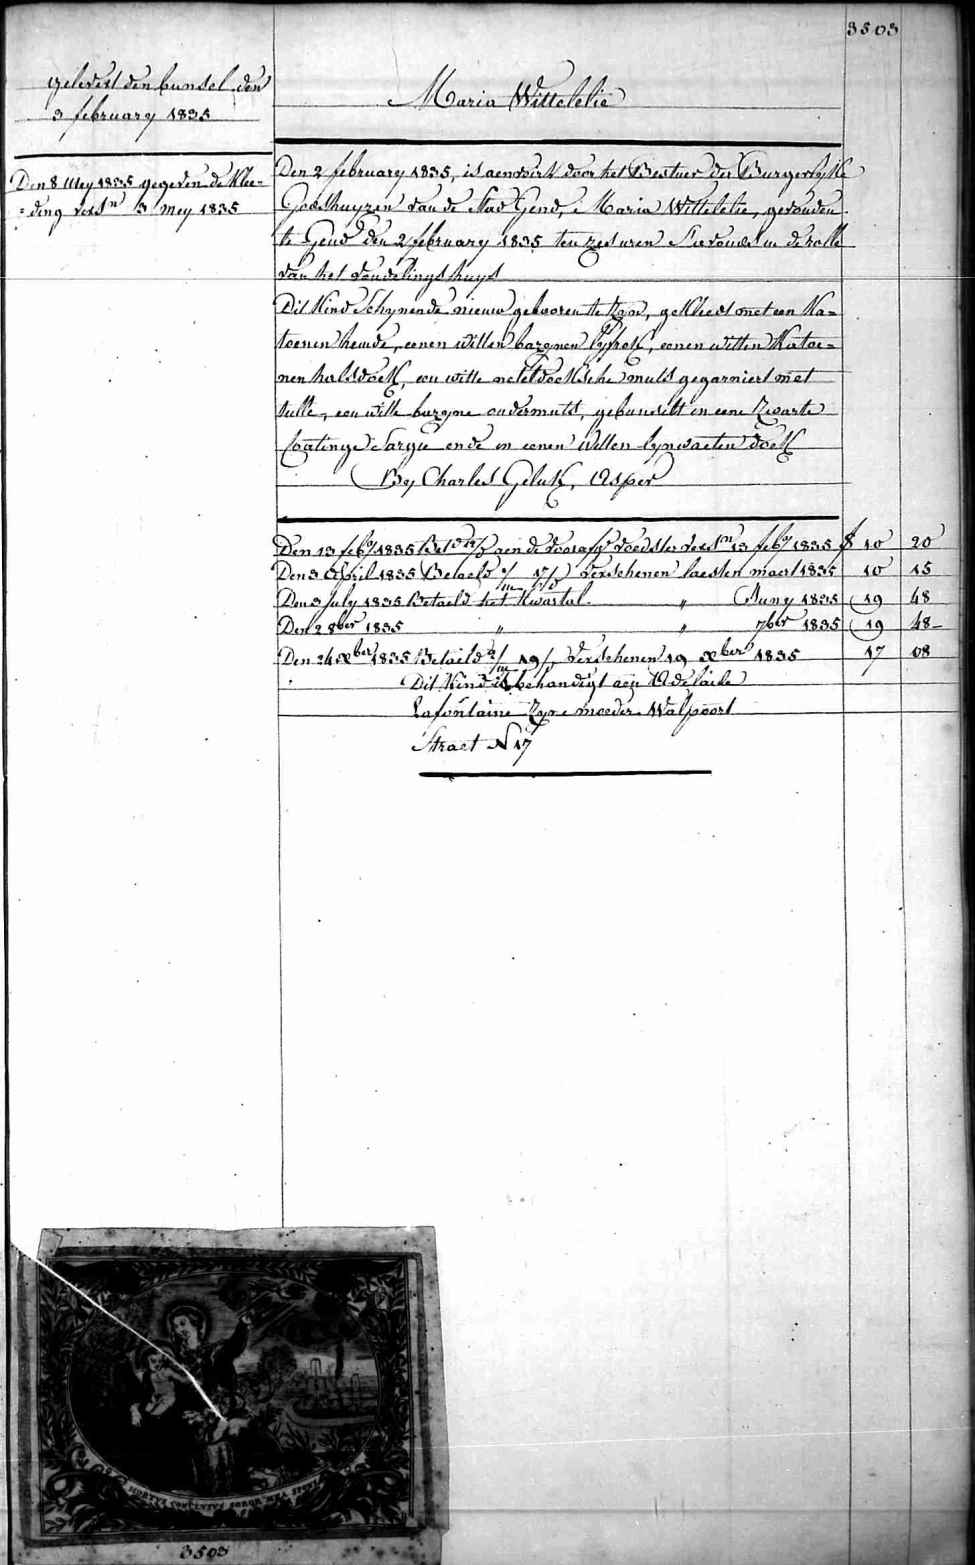 3503
gelevert den bunsel den
3 february 1835
Maria Wittelelie
Den 8 Mey 1835 gegeven de klee=
=ding versn 3 mey 1835
Den 2 february 1835, is aenveirt door het Bestuer der Burgerlyke
Godshuyzen van de Stad Gend, Maria Wittelelie, gevonden
te Gend den 2 february 1835 ten zes uren s'avonds in de rolle
van het vondelingshuys
Dit kind schynende nieuw gebooren te zyn, gekleed met een Ka=
toenen hemde, eenen witten bazynen lyfrok, eenen witten Katoe=
nen halsdoek, een witte neteldoeksche muts gegarniert met
tulle, een witte bazyne ondermuts, gebunselt in eene zwarte
Coatinge Sargie ende in eenen witten lynwaeten doek
By Charles Geluk, Asper
Den 13 feby 1835 aen de voedster versn 13 feby 1835 f 10 20
Den 3 April 1835 Betaeld verschenen laesten maert 1835 10 15
Den 3 July 1835 Betaeld het Kwartal " Juny 1835 19 48
Den 2 8ber 1835 " " 7ber 1835 19 48-
Den 24 xber 1835 Betaeld verschenen 19 xber 1835 17 08
Dit kind is behandigt aen Adelaide
Lafontaine zyne moeder Walpoort
Straet N 17
HORTUS CONCLUSUS SOROR MEA SPONSA
3503